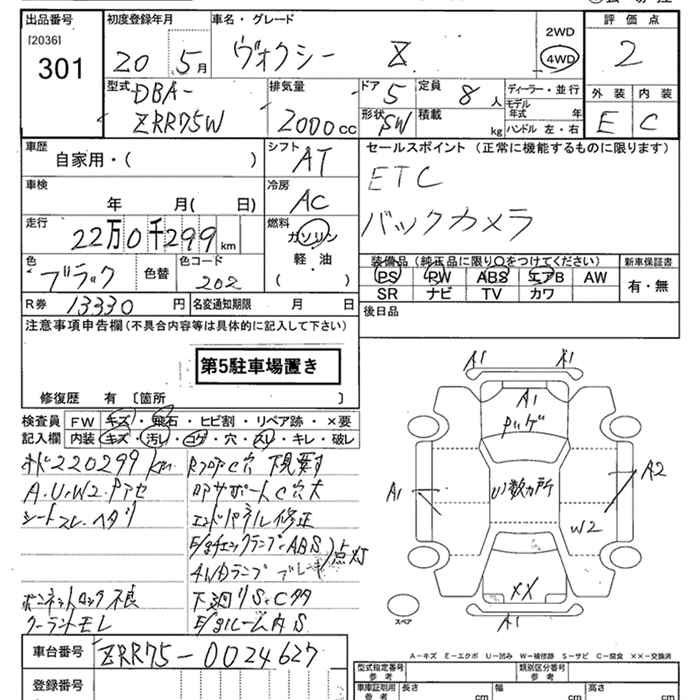 出品番号 初度登録年月 車名・グレード 評価点
[2036]
301
20 5月 ヴォクシー Z
2WD
4WD
2
型式 排気量 ドア 定員 ディーラー・並行
DBA-
ZRR75W
2000cc
5 8人
モデル年式 年
形状 積載
SW kg
ハンドル 左・右
外装 内装
E C
車歴 シフト セールスポイント (正常に機能するものに限ります)
自家用・( ) AT
ETC
車検 冷房
年 月( 日) AC
バックカメラ
走行 燃料
22万0千299km
ガソリン
軽・油
( )
色 色替 色コード
ブラック 202
装備品 (純正品に限り○をつけてください) 新車保証書
PS PW ABS エアB AW
SR ナビ TV カワ
有・無
R券 13330円 名変通知期限 月 日
後日品
注意事項申告欄 (不具合内容等は具体的に記入して下さい)
第5駐車場置き
修復歴 有 〔箇所 〕
検査員 FW キズ・飛石・ヒビ割・リペア跡・×要
記入欄 内装 キズ・汚レ・コゲ・穴・スレ・キレ・破レ
メーター220299km
A.U.W2.アセ
シートスレ.ヘタリ
RフロアC穴 下現要す
C穴大
エンドパネル修正
E/gチェックランプ.ABS
4WDランプ ブレーキ 点灯
ボンネットロック不良
クーラントモレ
下廻りS.C
E/gルーム内S
A1 A1
A1
A1
U数カ所
A2
W2
XX
A1
スペア
A－キズ E－エクボ U－凹み W－補修跡 S－サビ C－腐食 ××－交換済
車台番号 ZRR75-0024627
登録番号
型式指定番号 参考 類別区分番号 参考
車庫証明用 参考 長さ cm 幅 cm 高さ cm